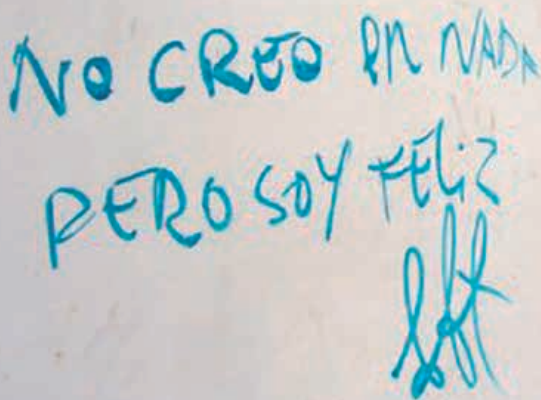 NO CREO EN NADA
PERO SOY FELIZ